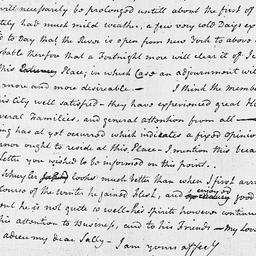 will necessarily be prolonged untill about the first of
had much mild weather, a few very cold Days ex
to Day that the River is open from New York to above
therefore that a Fortnight more will clear it of Ic
this Place; in which Case an adjournment will
more and more desireable — I think the Membe
City well satisfied — they have experienced great H
everal Families, and general attention from all —
ing has as yet occurred which indicates a fixed opinion
ernor ought to reside at this Place — I mention this beca
letter you wished to be informed on this point.
Schuyler looks much better than when I first arr
Course of the Winter he gained flesh, and enjoyed good
but he is not quite so well — his spirits however continue
his attention to Business, and to his Friends — My love
adieu my dear Sally — I am yours affecty